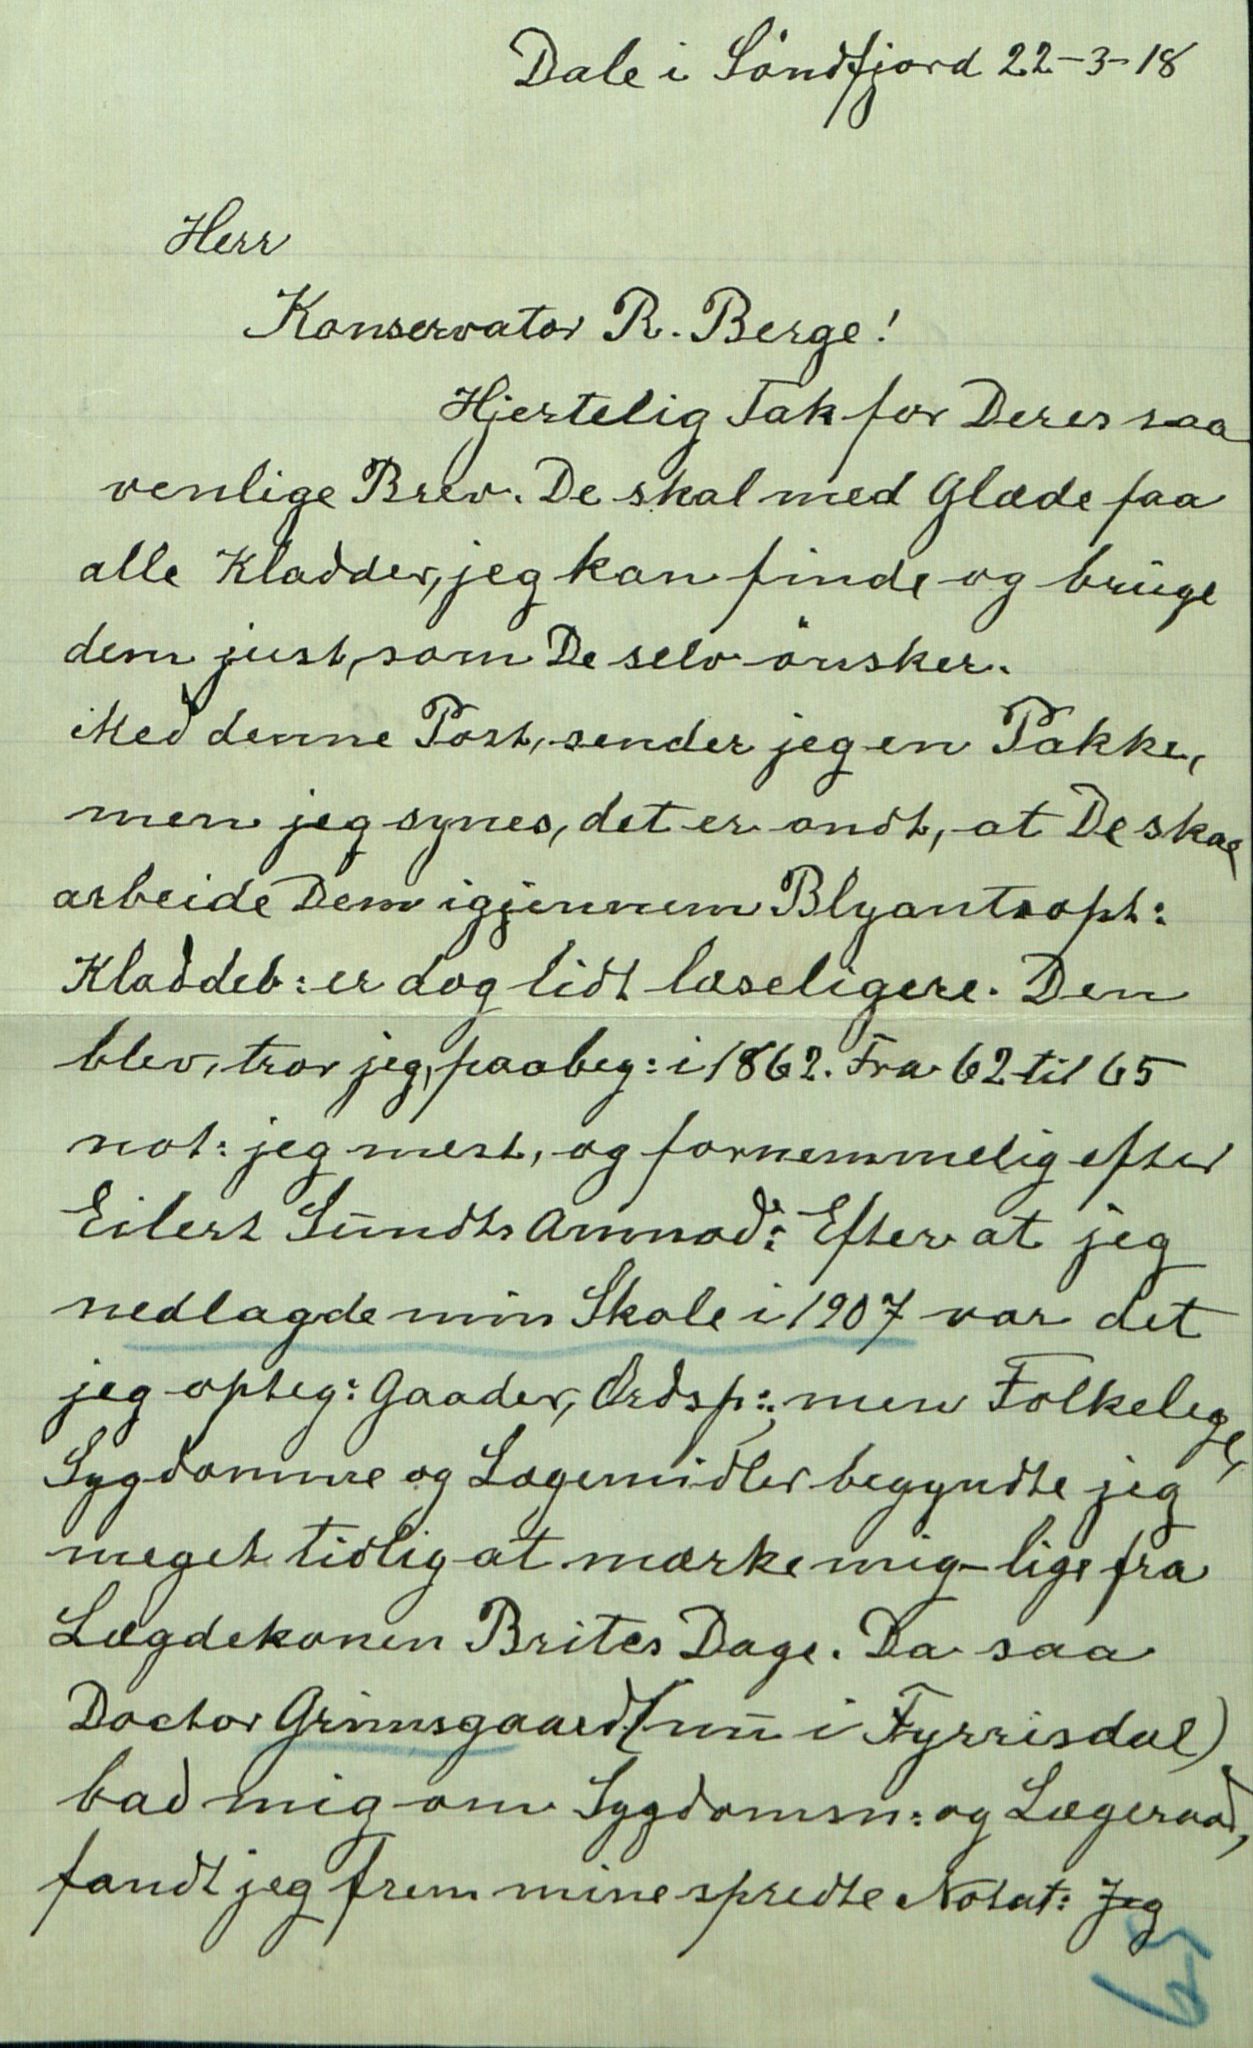 Dale i Söndfjord 22-3-18
Herr
Konservator R. Berge!
Hjertelig Tak for Deres saa
venlige Brev. De skal med Glæde faa
alle Kladder, jeg kan finde og bruge
dem just, som De selv önsker.
Med denne Post, sender jeg en Pakke,
men jeg synes, det er ondt, at De skal
arbeide Dem igjennem Blyantsopt:
Kladdeb: er dog lidt læseligere. Den
blev, tror jeg, paabeg: i 1862. Fra 62 til 65
not: jeg mest, og fornemmelig efter
Eilert Sundts Anmod: Efter at jeg
nedlagde min Skole i 1907 var det
jeg opteg: Gaader, Ordsp:, men Folkelege,
Sygdomme og Lægemidler begyndte jeg
meget tidlig at mærke mig - lige fra
Lægdekonen Brites Dage. Da saa
Doctor Grimsgaard (nu i Fyrrisdal)
bad mig om Sygdomsn: og Lægeraad,
fandt jeg frem mine spredte Notat: Jeg
65